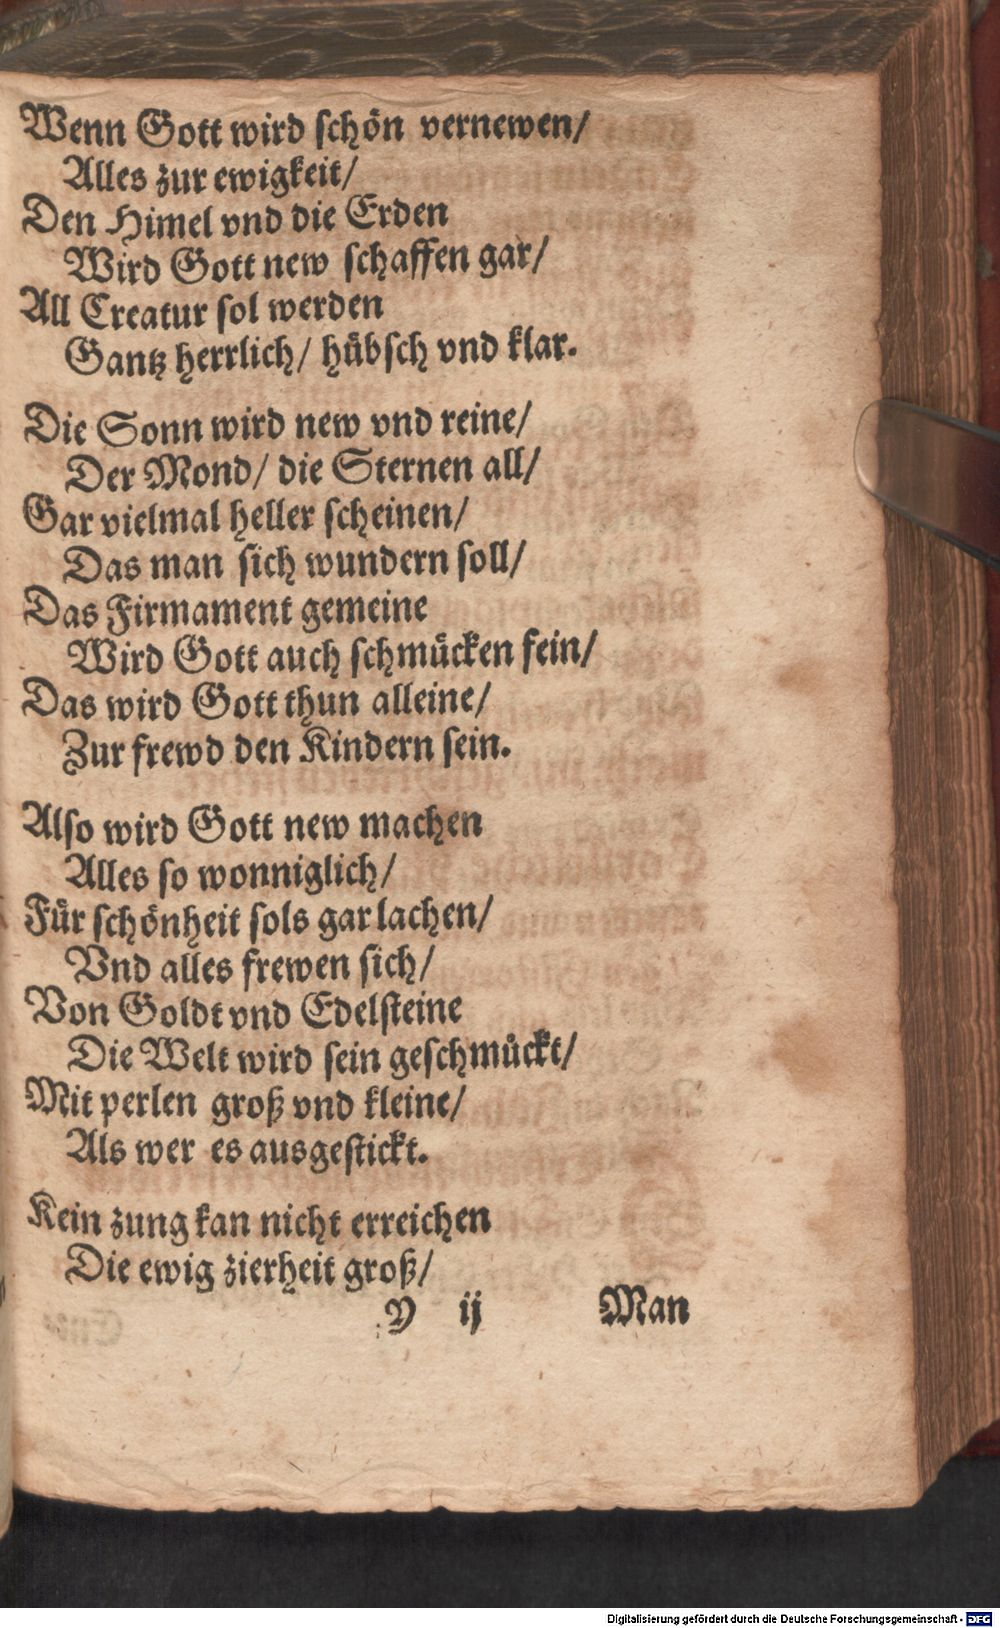 Wenn Gott wird schön vernewen/
Alles zur ewigkeit/
Den Himel vnd die Erden
Wird Gott new schaffen gar/
All Creatur sol werden
Gantz herrlich/ hübsch vnd klar.
Die Sonn wird new vnd reine/
Der Mond/ die Sternen all/
Gar vielmal heller scheinen/
Das man sich wundern soll/
Das Firmament gemeine
Wird Gott auch schmücken fein/
Das wird Gott thun alleine/
Zur frewd den Kindern sein.
Also wird Gott new machen
Alles so wonniglich/
Für schönheit sols gar lachen/
Vnd alles frewen sich/
Von Goldt vnd Edelsteine
Die Welt wird sein geschmückt/
Mit perlen groß vnd kleine/
Als wer es ausgestickt.
Kein zung kan nicht erreichen
Die ewig zierheit groß/
Y ij Man
Digitalisierung gefördert durch die Deutsche Forschungsgemeinschaft - DFG